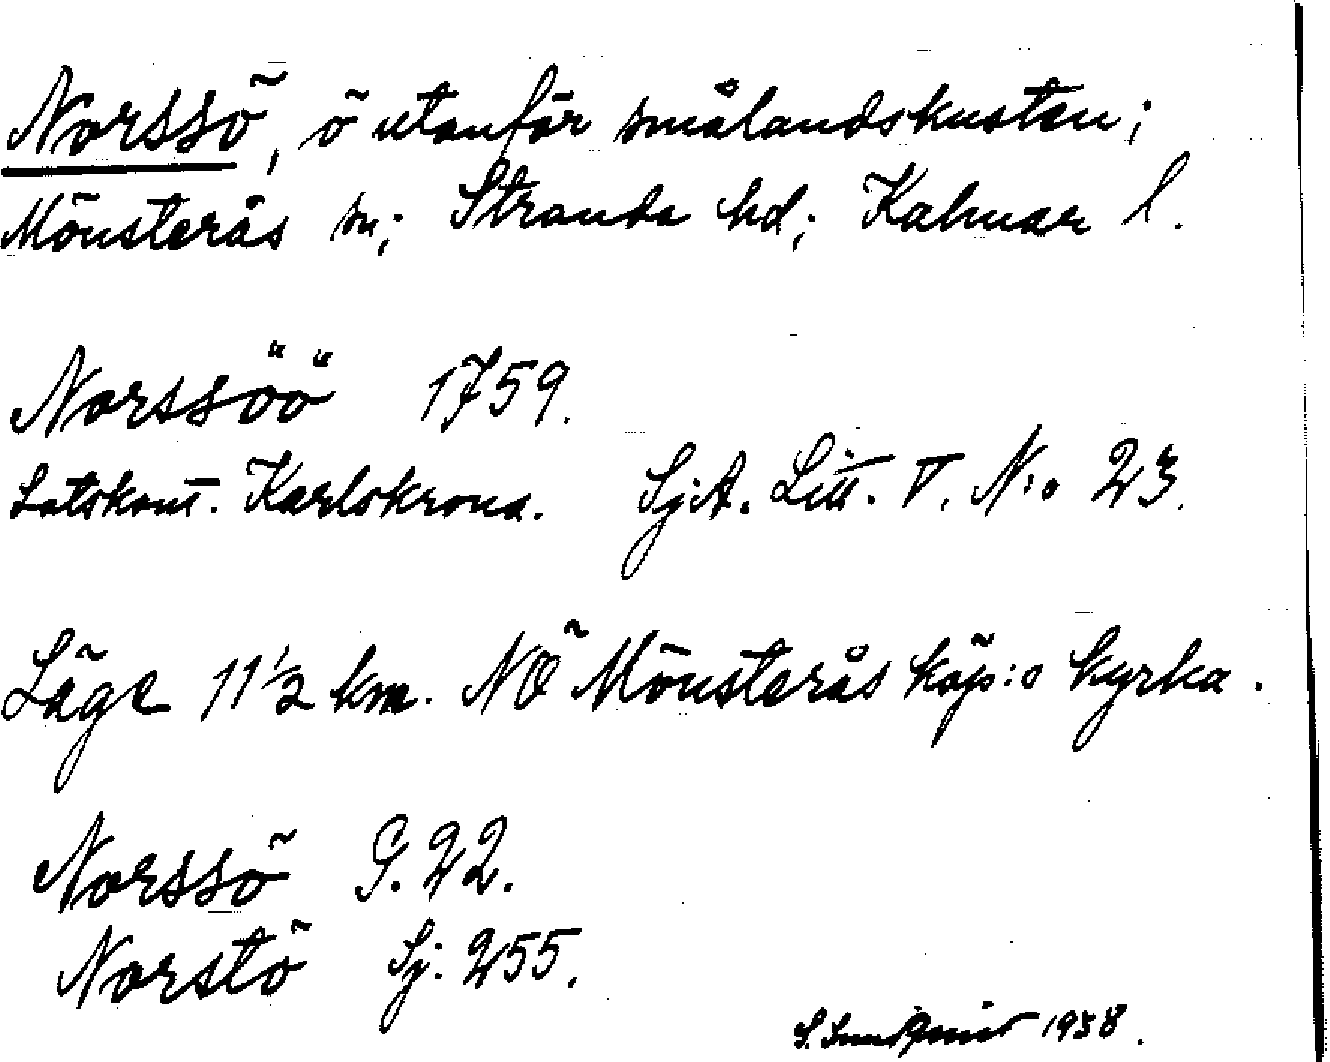 Norssö, ö utanför smålandskusten;
Mönsterås sn; Stranda hd; Kalmar l.
Norssöö 1759.
Lotskont. Karlskrona. SjA. Litt. V. N:o 23.
Läge 11 1/2 km. NÖ Mönsterås köp:s kyrka.
Norssö G. 22.
Norstö Sj. 255.
1938.